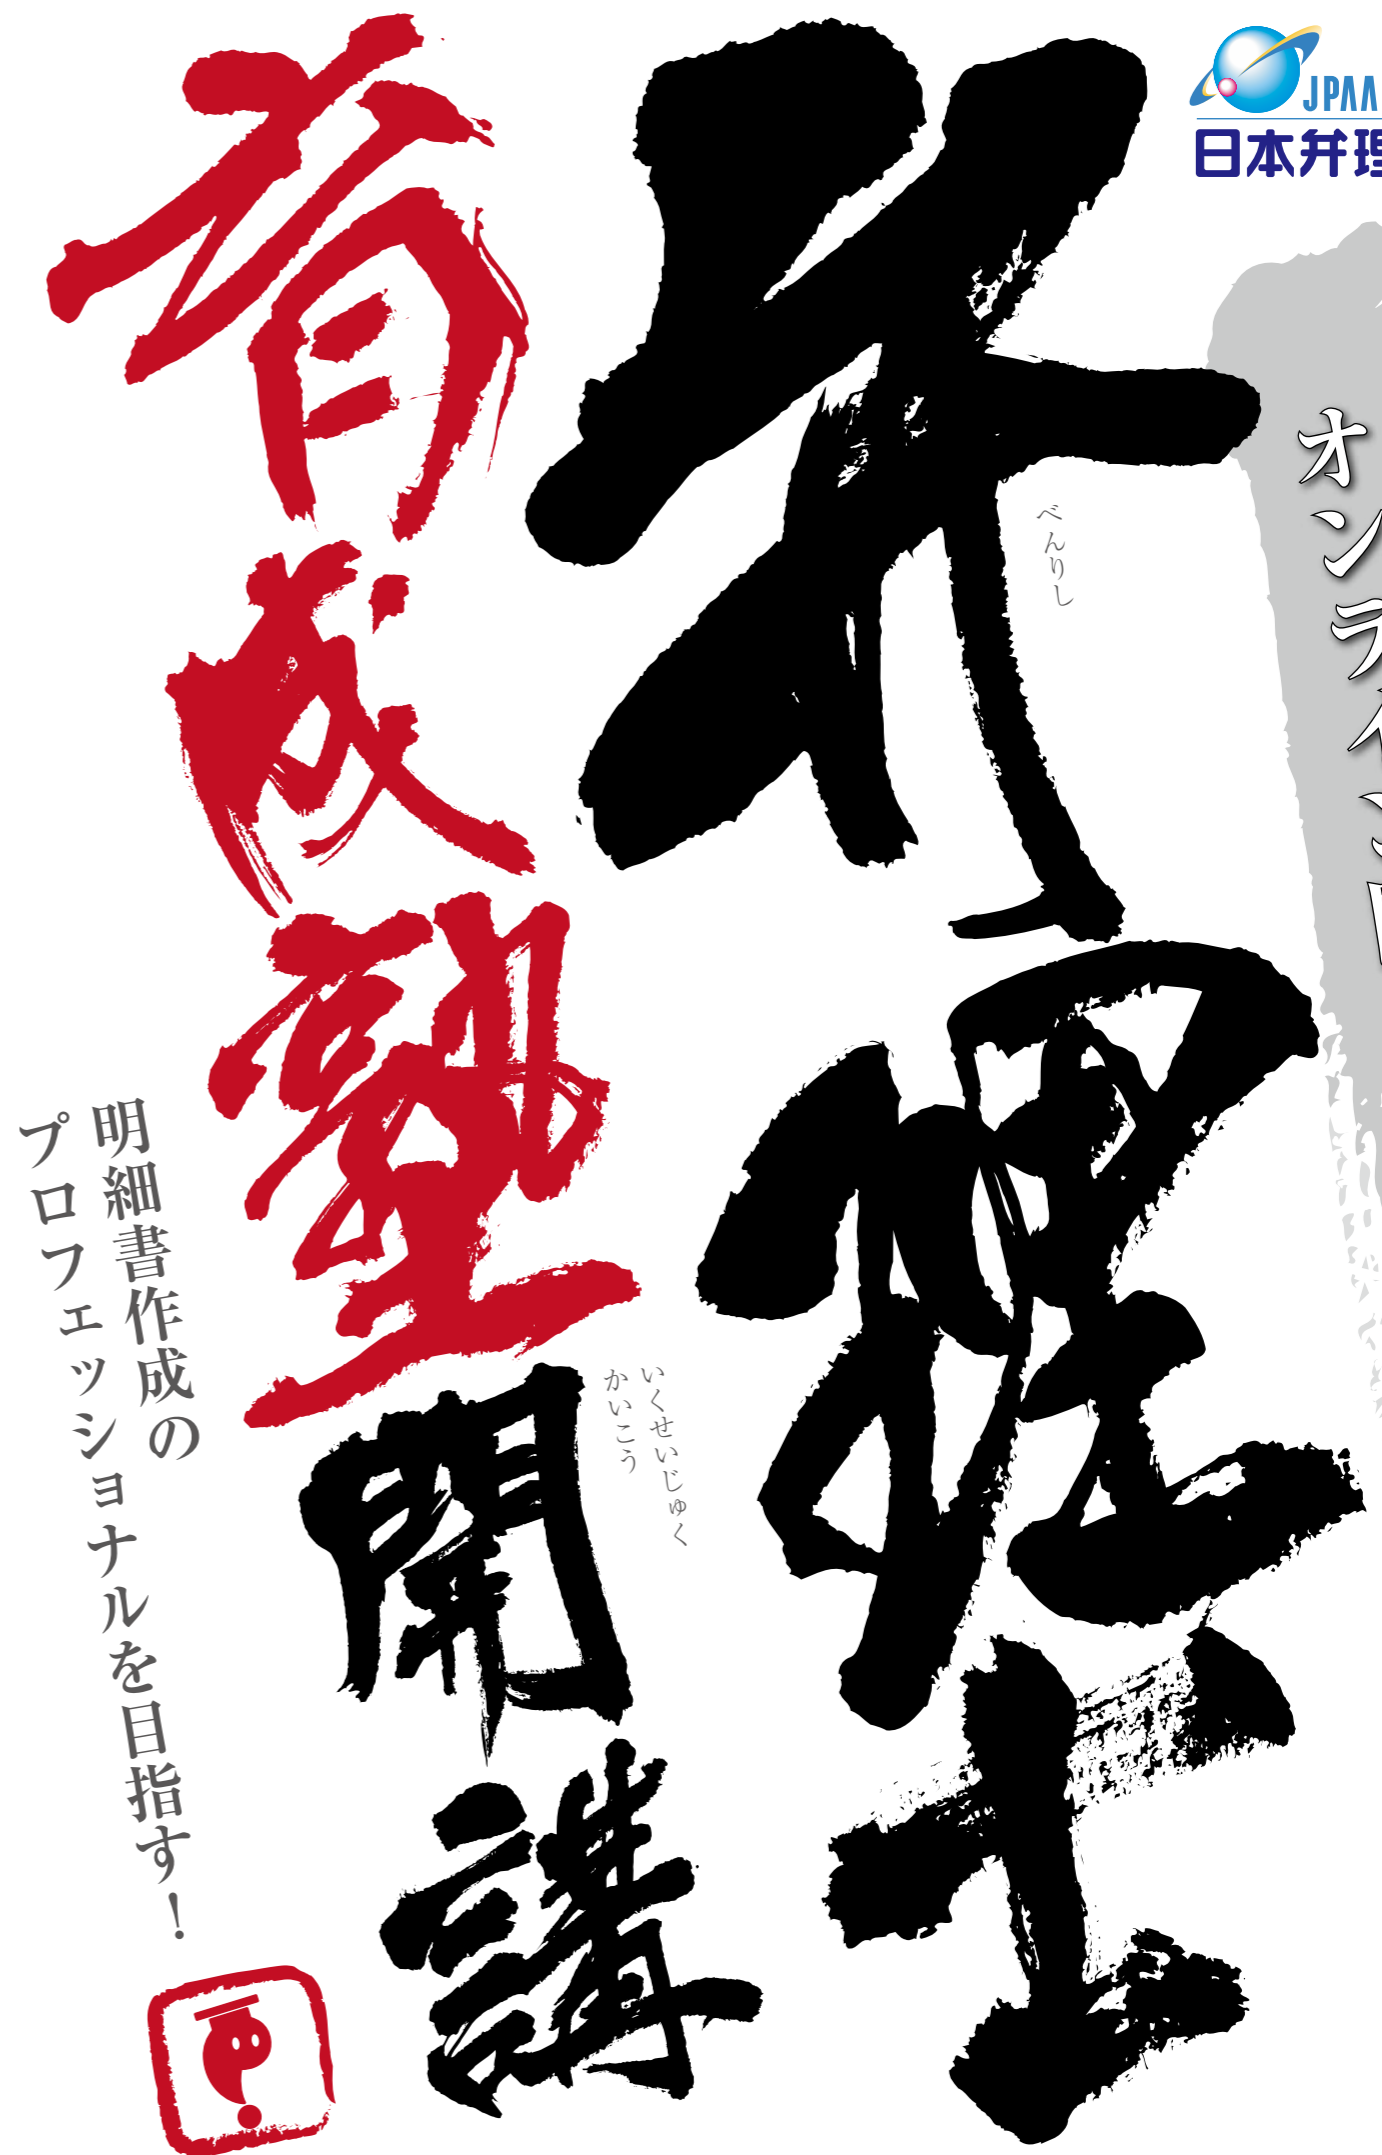 JPAA
日本弁理
オンライン
弁理士
べんりし
育成塾開講
いくせいじゅく
かいこう
明細書作成の
プロフェッショナルを目指す！